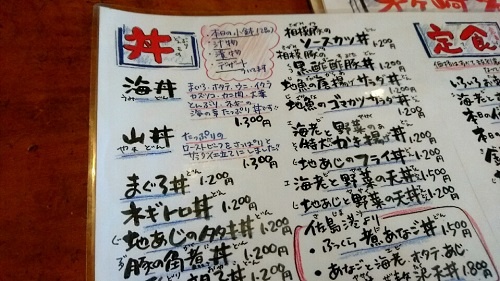 丼
・本日の小鉢(2品)
・汁物
・漬物
・デザート
海丼
まぐろ、ホタテ、ウニ、イクラ
1,300円
山丼
たっぷりの
ローストビーフをさっぱりと
サラダ仕立てにしました!
1,300円
まぐろ丼 1,200円
ネギトロ丼 1,200円
地あじのタタキ丼 1,200円
豚の角煮丼 1,200円
1,200円
相模豚の
ソースカツ丼 1,200円
相模豚の
黒酢酢豚丼 1,200円
地魚の唐揚げサラダ丼 1,200円
地魚のゴマカツサラダ丼 1,200円
海老と野菜の
特大かき揚げ丼 1,200円
地あじのフライ丼 1,200円
海老と野菜の天丼 1,200円
地あじと野菜の天丼 1,200円
佐島港より
・ふっくら煮あなご丼 1,500円
・あなごと海老、ホタテ、あじ
天丼 1,800円
定食